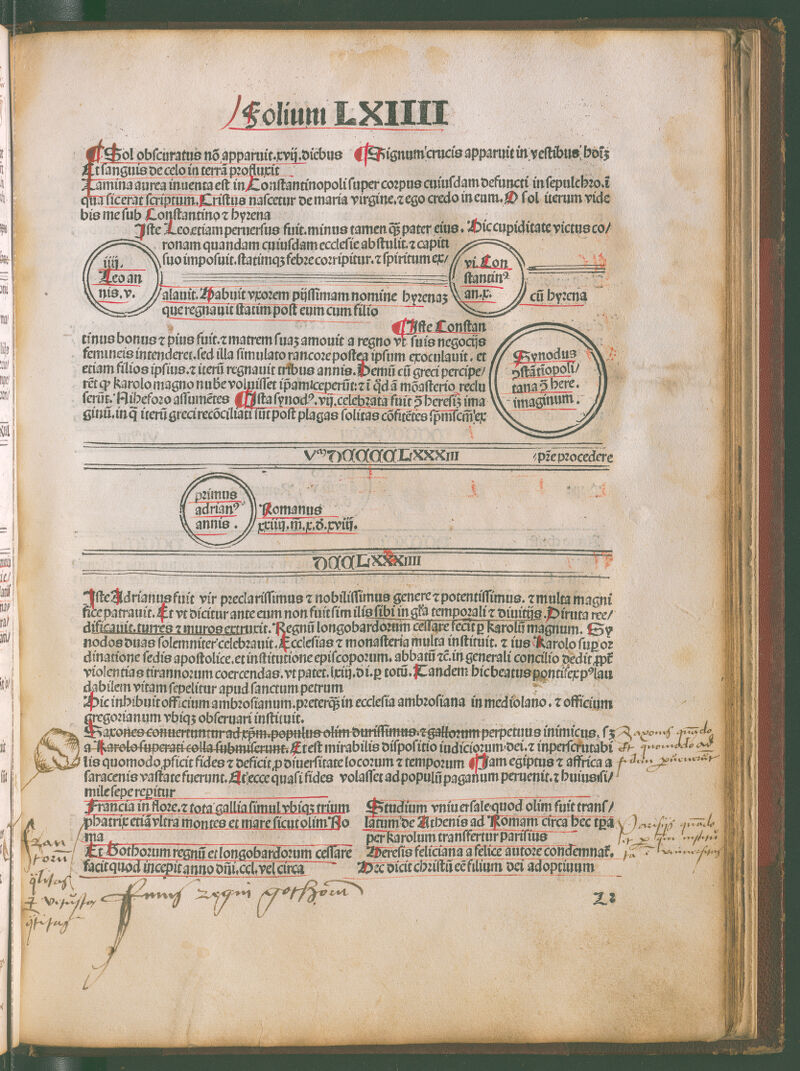 Folium LXIIII
¶ Sol obscuratus nō apparuit.xvij.diebus ¶ Signum crucis apparuit in vestibus hoīꝫ
Et sanguis de celo in terrā profluxit
Lamina aurea inuenta est in Constantinopoli super corpus cuiusdam defuncti in sepulchro.ī
qua sic erat scriptum.Cristus nascetur de maria virgine.⁊ ego credo in eum. O sol iterum vide
bis me sub Constantino ⁊ hyrena
Iste Leo.etiam peruersus fuit.minus tamen qꝫ pater eius. Hic cupiditate victus co/
ronam quandam cuiusdam ecclesie abstulit.⁊ capiti
suo imposuit.statimqꝫ febre corripitur.⁊ spiritum ex/
iiij.
Leo an
nis.v.
vi. Con
stantinꝰ
an.x.
cū hyrena
alauit. Habuit vxorem pijssimam nomine hyrenaꝫ
que regnauit statim post eum cum filio
¶ Iste Constan
tinus bonus ⁊ pius fuit.⁊ matrem suaꝫ amouit a regno vt suis negocijs
femineis intenderet.sed illa simulato rancore postea ipsum exoculauit. et
etiam filios ipsius.⁊ iterū regnauit tribus annis. Demū cū greci percipe/
rēt ꝙ karolo magno nube voluisset ip̄am iceperūt:⁊ ī qd̄ā mōasterio reclu
serūt. Niheforo assumētes ¶ Ista synodꝰ.vij.celebrata fuit ꝯ heresiꝫ ima
ginū.in q̄ iterū greci recōciliati sūt post plagas solitas cōfitētes sp̄mscm̄ ex
Synodus
ꝯstātiopoli/
tana ꝯ here.
imaginum.
Vᵐ DCCCCLXXXIII
/pr̄e procedere
primus
adrianꝰ
annis.
Romanus
xxiiij.m̄.x.d̄.xviij.
DCCLXXXIIII
Iste Adrianus fuit vir preclarissimus ⁊ nobilissimus genere ⁊ potentissimus. ⁊ multa magni
fice patrauit. Et vt dicitur ante eum non fuit similis sibi in gl̄ia temporali ⁊ diuitijs. Diruta ree/
dificauit.turres ⁊ muros extruxit. Regnū longobardorum cessare fecit ꝑ karolū magnum. Sy
nodos duas solemniter celebrauit. Ecclesias ⁊ monasteria multa instituit. ⁊ ius Karolo suꝑ or
dinatione sedis apostolice.et institutione episcoporum. abbatū ⁊c̄.in generali concilio dedit ꝓpt̄
violentias tirannorum coercendas.vt patet.lxiij.di.ꝑ totū. Tandem hic beatus pontifex pꝰ lau
dabilem vitam sepelitur apud sanctum petrum
Hic inhibuit officium ambrosianum.preterqꝫ in ecclesia ambrosiana in mediolano. ⁊ officium
gregorianum vbiqꝫ obseruari instituit.
Saxones conuertuntur ad xp̄m.populus olim durissimus.⁊ gallorum perpetuus inimicus. sꝫ
a Karolo superati colla submiserunt. Et est mirabilis dispositio iudiciorum dei.⁊ inperscrutabi
lis quomodo ꝓficit fides ⁊ deficit.ꝓ diuersitate locorum ⁊ temporum ¶ Nam egiptus ⁊ affrica a
saracenis vastate fuerunt. At ecce quasi fides volasset ad populū paganum peruenit.⁊ huiusi/
mile sepe reperitur
Francia in flore.⁊ tota gallia simul vbiqꝫ trium
phatrix etiā vltra montes et mare sicut olim Ro
ma
Et Gothorum regnū et longobardorum cessare
facit quod incepit anno dn̄i.ccl.vel circa
Studium vniuersale quod olim fuit trans/
latum de Athenis ad Romam circa hec tꝑa
per karolum transfertur parisius
Heresis feliciana a felice autore condemnat̄.
Hec dicit christū eē filium dei adoptiuum
Saxones quādo
et quomodo ad
fidem puenerūt
Parisijs quādo
Finis regni gothorū